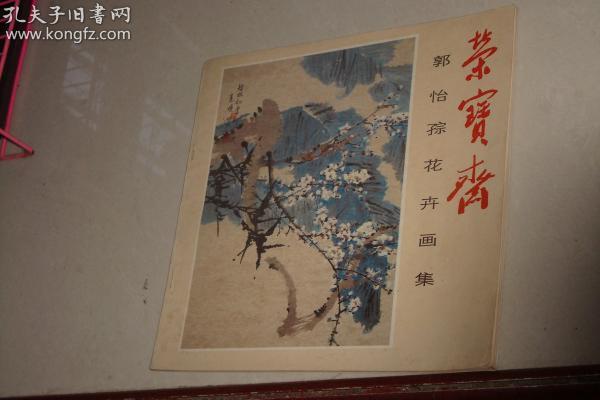 孔夫子旧书网
www.kongfz.com
荣宝斋
郭怡孮花卉画集